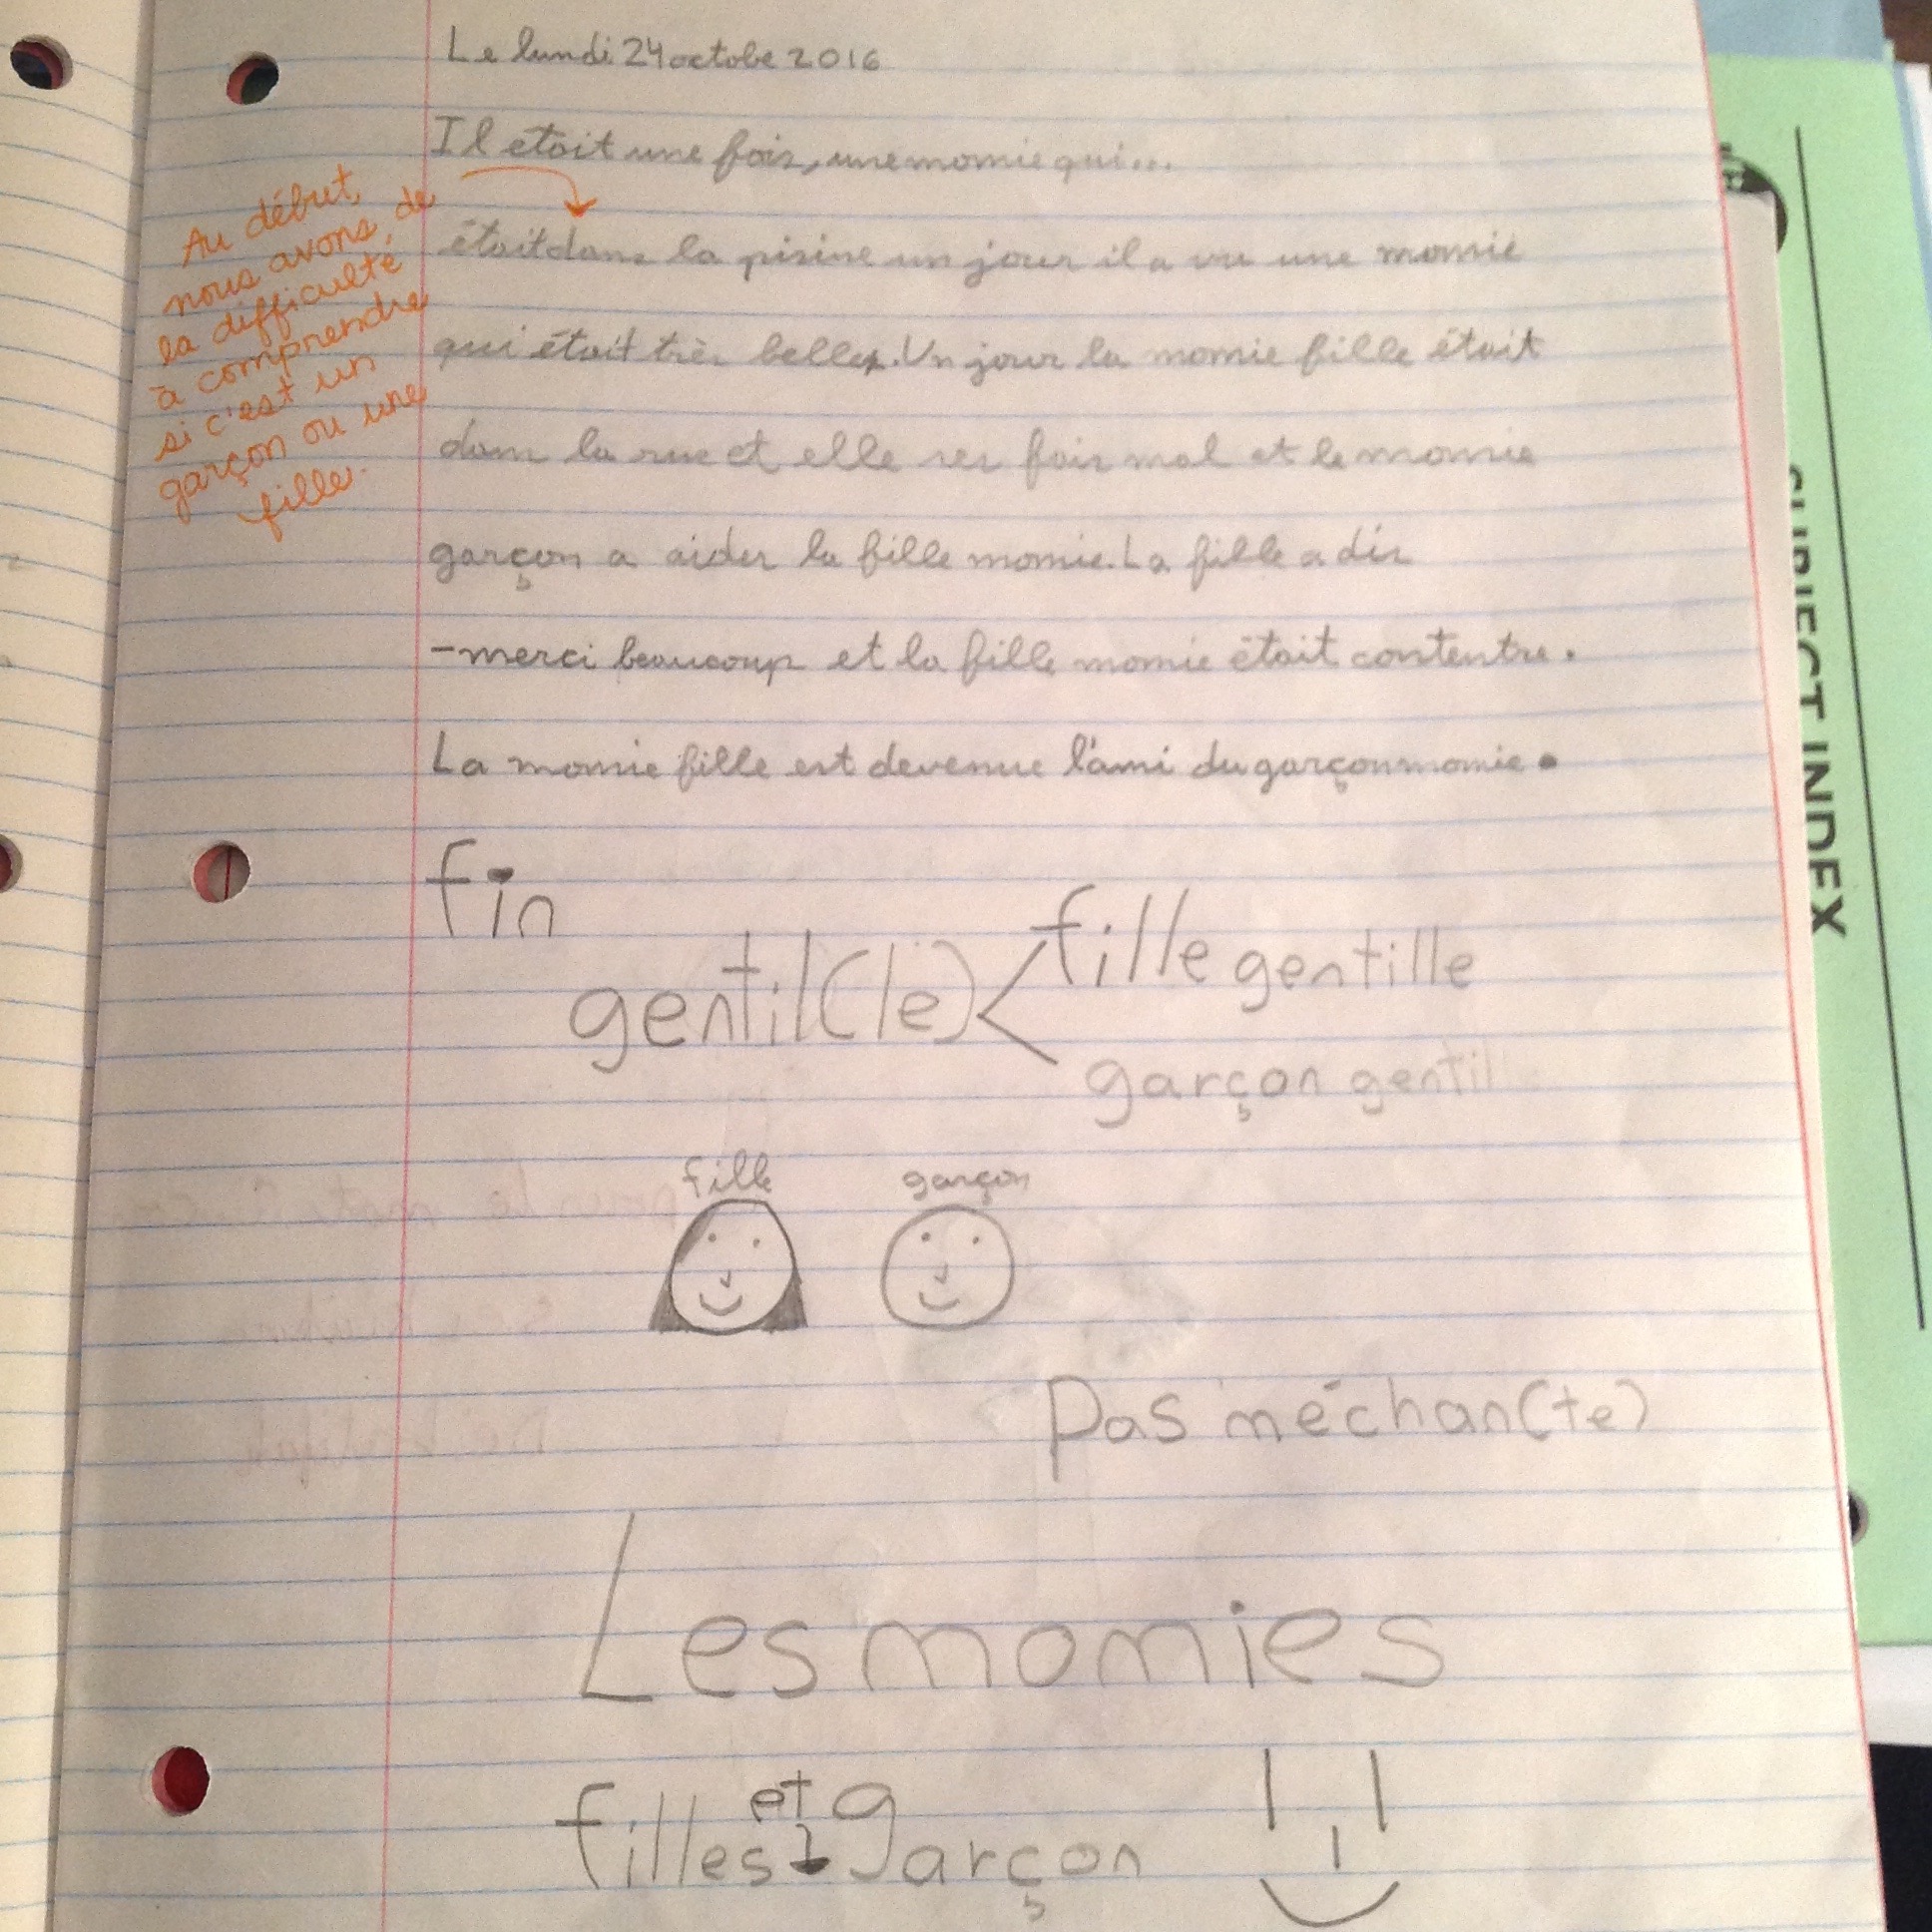 Le lundi 24 octobe 2016
Il etoit une fois, une momie qui...
Au début,
nous avons de
la difficulté
à comprendre
si c'est un
garçon ou une
fille.
étoit dans la pisine un jour il a vu une momie
qui étoit très belle. Un jour la momie fille étoit
dans la rue et elle ses fais mal et le momie
garçon a aider la fille momie. La fille a dis
-merci beaucoup et la fille momie était contentre.
La momie fille est devenue l'ami du garçon momie.
fin
gentil(le) < fille gentille
garçon gentil
fille garçon
Pas méchan(te)
Les momies
filles et garçon
SUBJECT INDEX